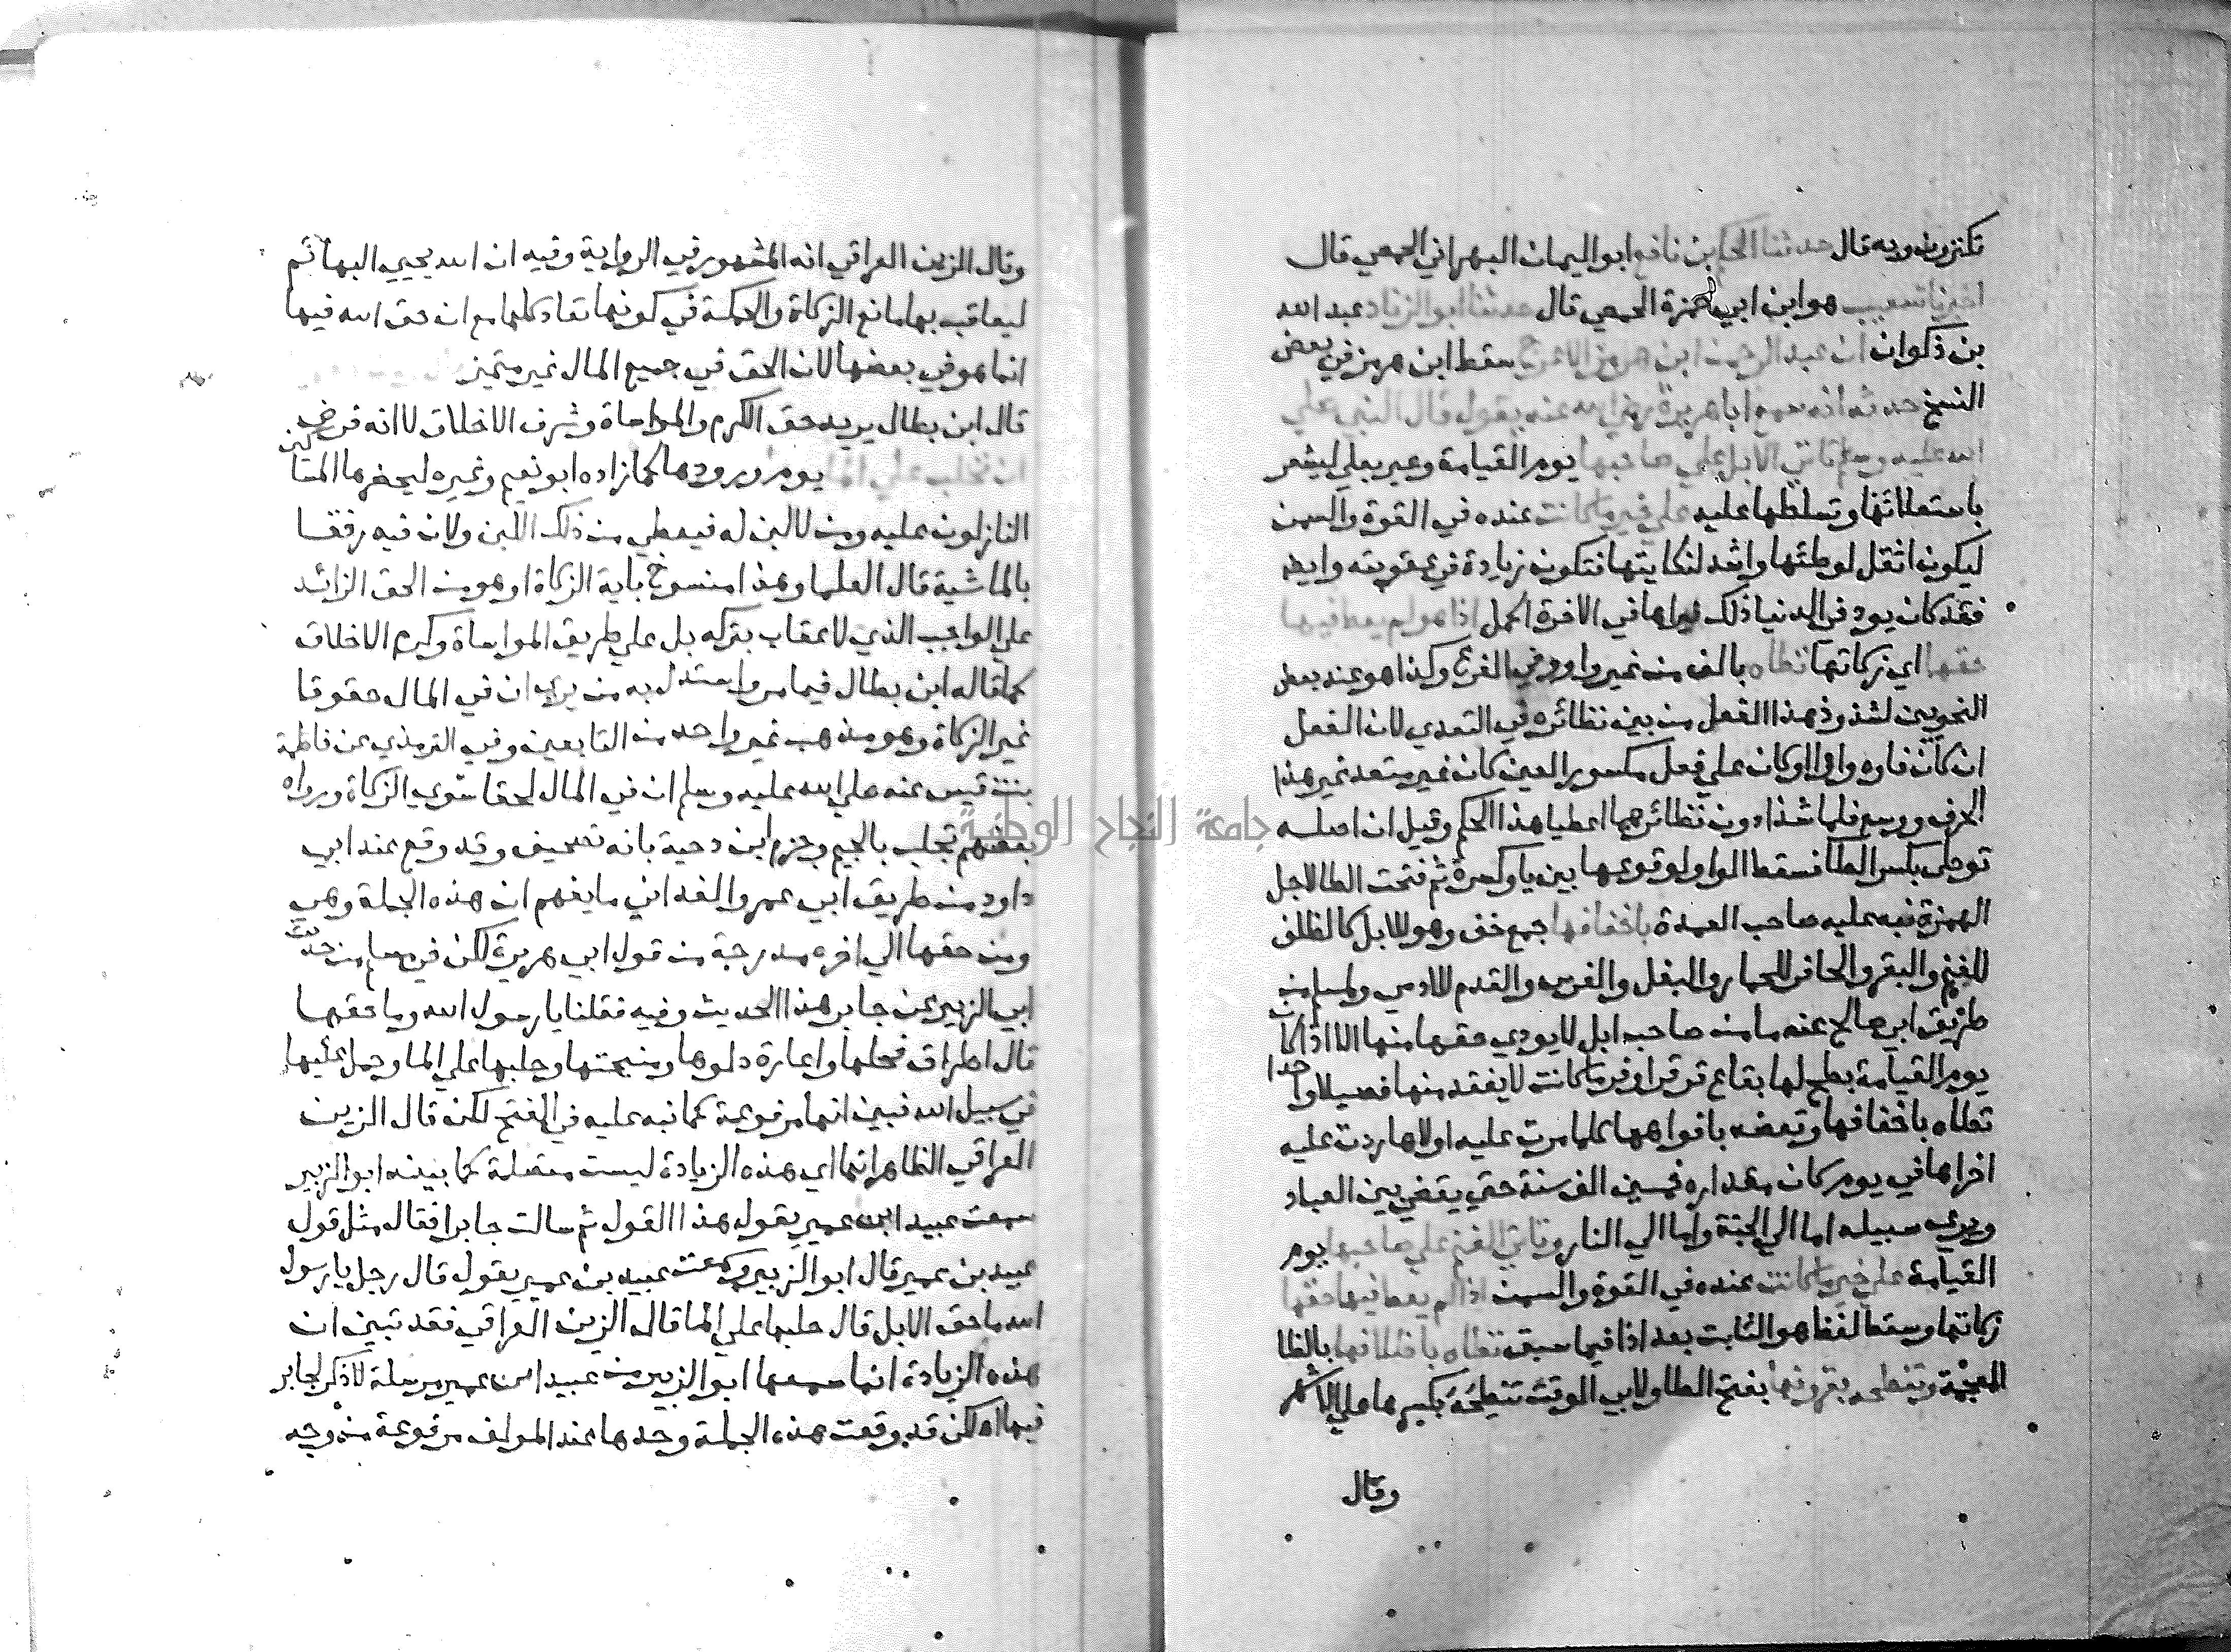 تكنزون وبه قال حدثنا الحكم بن نافع ابو اليمان البهراني الحمصي قال
اخبرنا شعيب هو ابن ابي حمزة الحمصي قال حدثنا ابو الزناد عبد الله
بن ذكوان ان عبد الرحمن ابن هرمز الاعرج سقط ابن هرمز في بعض
النسخ حدثه انه سمع ابا هريرة رضي الله عنه يقول قال النبي صلي
الله عليه وسلم تاتي الابل علي صاحبها يوم القيامة وعبر بعلي ليشعر
باستعلائها وتسلطها عليه علي خير ما كانت عنده في القوة والسمن
ليكون اثقل لوطئها واشد لنكايتها فتكون زيادة في عقوبته وايضا
فقد كان يود في الدنيا ذلك فيراها في الاخرة اكمل اذا هو لم يعط فيها
حقها اي زكاتها تطاه بالف من غير واو في الفرع وكذا هو عند بعض
النحويين لشذوذ هذا الفعل من بين نظائره في التعدي لان الفعل
ان كان فاوه واوا وكان علي فعل مكسور العين كان غير متعد غير هذا
الحرف ووسع فلما شذا دون نظائرهما اعطيا هذا الحكم وقيل ان اصله
توطي بكسر الطا فسقط الواو لوقوعها بين يا وكسرة ثم فتحت الطا لاجل
الهمزة نبه عليه صاحب العمدة باخفافها جمع خف وهو للابل كالظلف
للغنم والبقر والحافر للحمار والبغل والفرس والقدم للادمي ولمسلم من
طريق ابي صالح عنه ما من صاحب ابل لا يودي حقها منها الا اذا كان
يوم القيامة بطح لها بقاع قرقر اوفر ما كانت لا يفقد منها فصيلا واحدا
تطاه باخفافها وتعضه بافواهها كلما مرت عليه اولاها ردت عليه
اخراها في يوم كان مقداره خمسين الف سنة حتي يقضي بين العباد
ويري سبيله اما الي الجنة واما الي النار وتاتي الغنم علي صاحبها يوم
القيامة علي خير ما كانت عنده في القوة والسمن اذا لم يعط فيها حقها
زكاتها وسقط لفظ هو الثابت بعد اذا فيما سبق تطاه باظلافها بالظا
المعجمة وتنطحه بقرونها بفتح الطا ولابي الوقت تنطِحُهُ بكسرها علي الاشهر
وقال
وقال الزين العراقي انه المشهور في الرواية وفيه ان الله يحيي البهائم
ليعاقب بها مانع الزكاة والحكمة في كونها تعاد كلها مع ان حق الله فيها
انما هو في بعضها لان الحق في جميع المال غير متميز
قال ابن بطال يريد حق الكرم والمواساة وشرف الاخلاق لا انه فرض
ان تحلب علي الما يوم ورودها كما زاده ابو نعيم وغيره ليحضرها المساكين
النازلون عليه ومن لا لبن له فيعطي من ذلك اللبن ولان فيه رفقا
بالماشية قال العلما وهذا منسوخ باية الزكاة او هو من الحق الزائد
علي الواجب الذي لا عقاب بتركه بل علي طريق المواساة وكرم الاخلاق
كما قاله ابن بطال فيما مر واستدل به من يري ان في المال حقوقا
غير الزكاة وهو مذهب غير واحد من التابعين وفي الترمذي عن فاطمة
بنت قيس عنه صلي الله عليه وسلم ان في المال لحقا سوي الزكاة ورواه
بعضهم تجلب بالجيم وجزم ابن دحية بانه تصحيف وقد وقع عند ابي
داود من طريق ابي عمرو الغداني ما يفهم ان هذه الجملة وهي
ومن حقها الي اخره مدرجة من قول ابي هريرة لكن في مسلم من حديث
ابي الزبير عن جابر هذا الحديث وفيه فقلنا يا رسول الله وما حقها
قال اطراق فحلها واعارة دلوها ومنيحتها وحلبها علي الما وحمل عليها
في سبيل الله فبين انها مرفوعة كما نبه عليه في الفتح لكن قال الزين
العراقي الظاهر انها اي هذه الزيادة ليست متصلة كما بينه ابو الزبير
سمعت عبيد ابن عمير يقول هذا القول ثم سالت جابرا فقال مثل قول
عبيد بن عمير قال ابو الزبير وسمعت عبيد بن عمير يقول قال رجل يا رسول
الله ما حق الابل قال حلبها علي الما قال الزين العراقي فقد تبين ان
هذه الزيادة انما سمعها ابو الزبير من عبيد ابن عمير مرسلة لا ذكر لجابر
فيها اه لكن قد وقعت هذه الجملة وحدها عند المولف مرفوعة من وجه
جامعة النجاح الوطنية